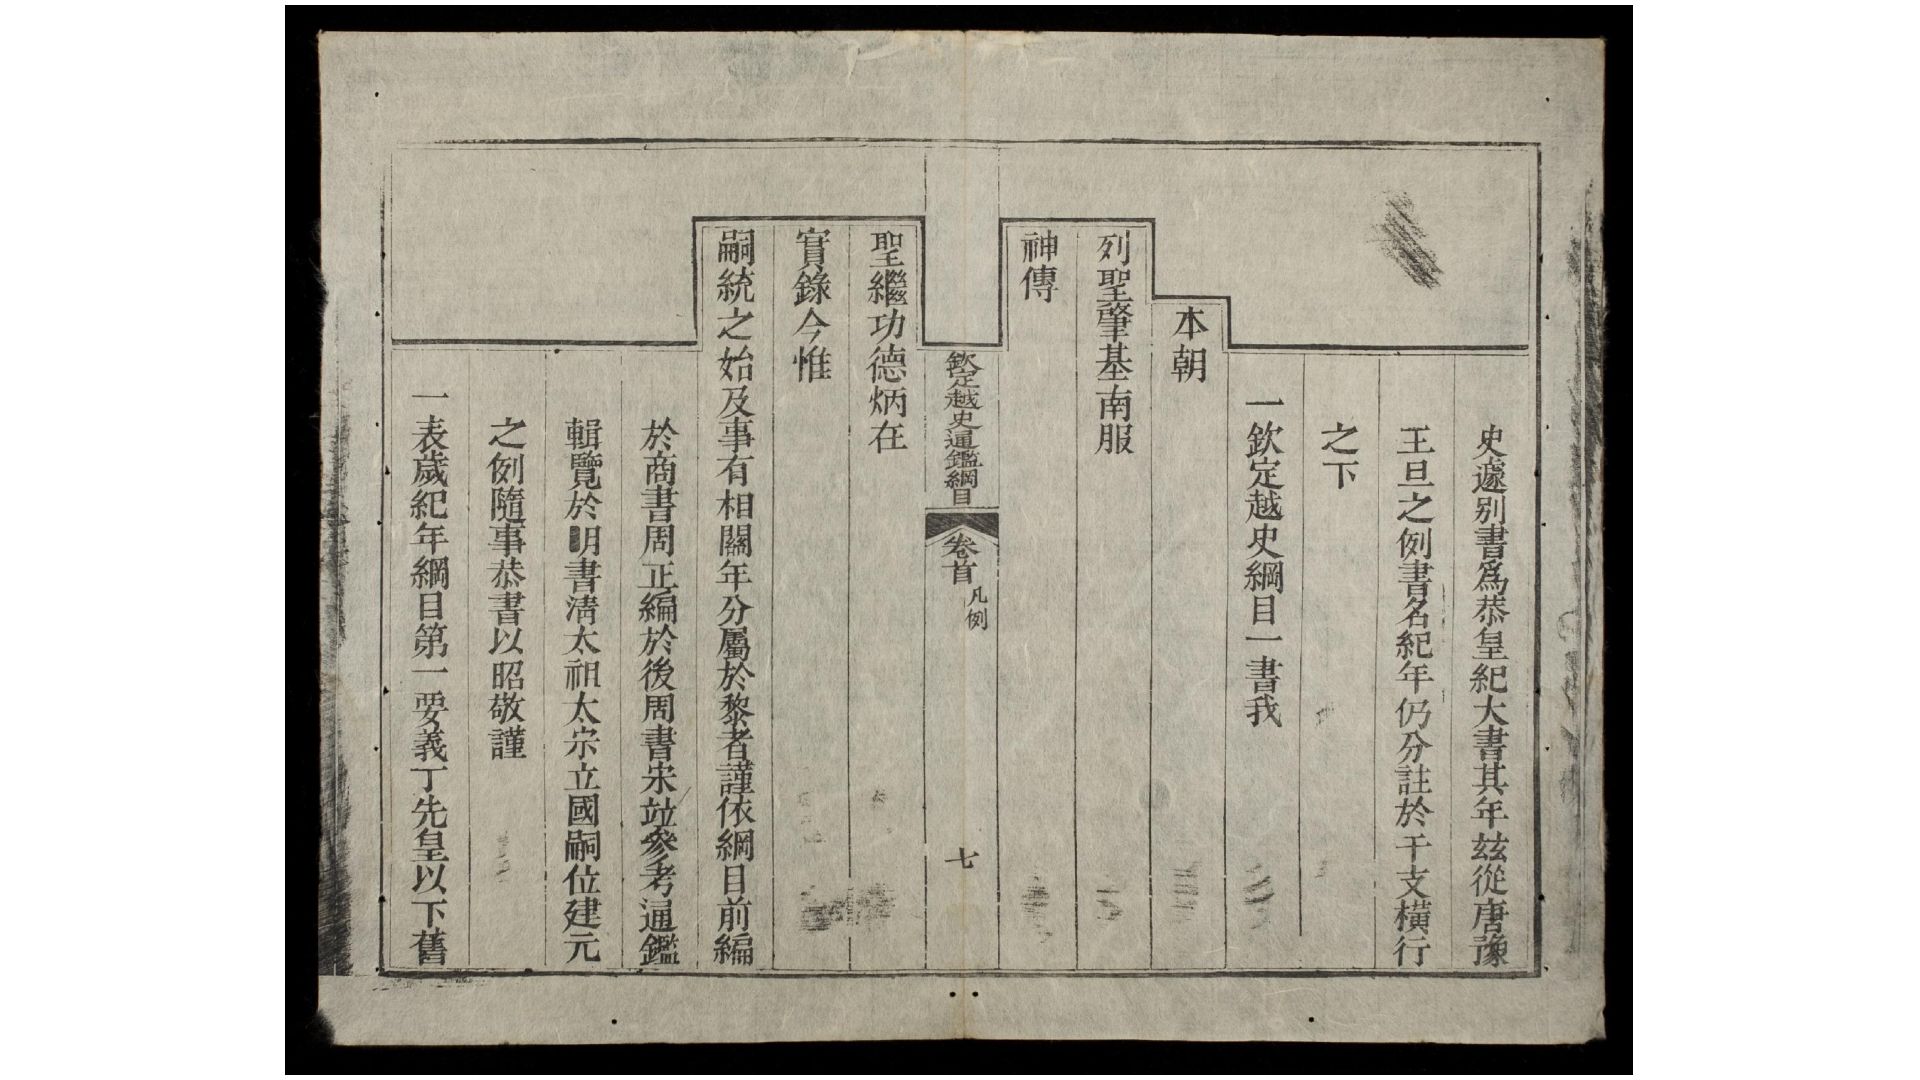 史遽别書爲恭皇紀大書其年玆從唐豫
王旦之例書名紀年仍分註於干支橫行
之下
一欽定越史綱目一書我
本朝
列聖肇基南服
神傳
欽定越史通鑑綱目
卷首
凡例
七
聖繼功德炳在
實錄今惟
嗣統之始及事有相關年分屬於黎者謹依綱目前編
於商書周正編於後周書宋竝參考通鑑
輯覽於明書淸太祖太宗立國嗣位建元
之例隨事恭書以昭敬謹
一表歲紀年綱目第一要義丁先皇以下舊